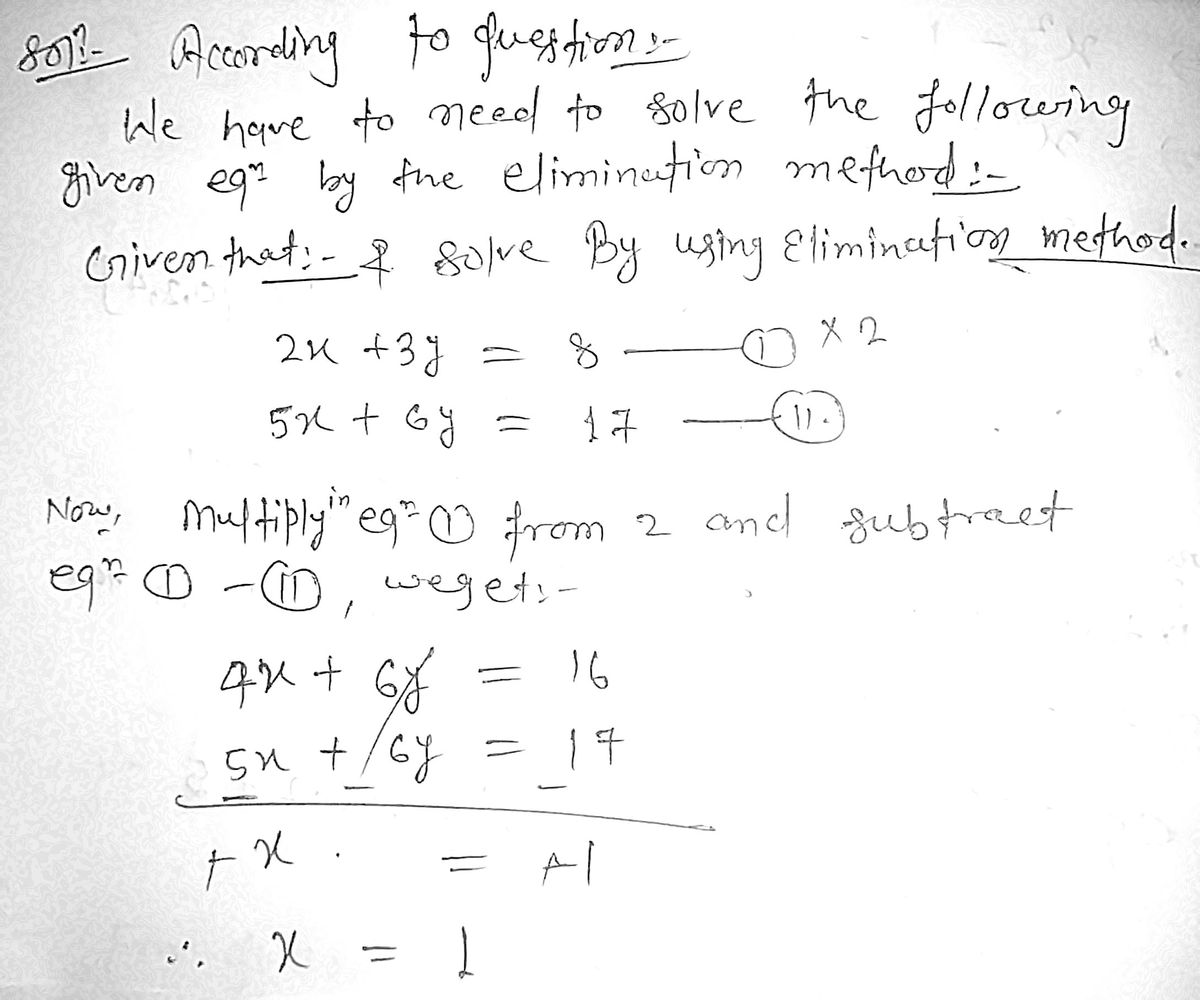 Solⁿ:- According to question:-
We have to need to solve the following
given eqⁿ by the elimination method:-
Given that:- & solve By using Elimination method.
2x + 3y = 8 —— ① × 2
5x + 6y = 17 —— ⑪.
Now, Multiplyⁱⁿ eqⁿ ① from 2 and subtract
eqⁿ ① - ⑪, we get:-
4x + 6y = 16
5x + 6y = 17
- - -
+x = +1
∴ x = 1